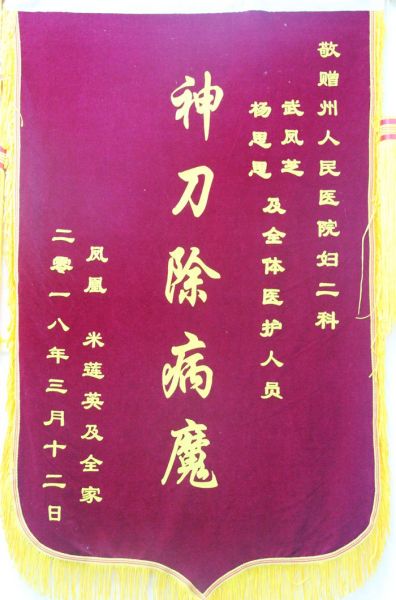 敬赠州人民医院妇二科
武凤芝
杨思思 及全体医护人员
神刀除病魔
凤凰 米莲英及全家
二零一八年三月十二日